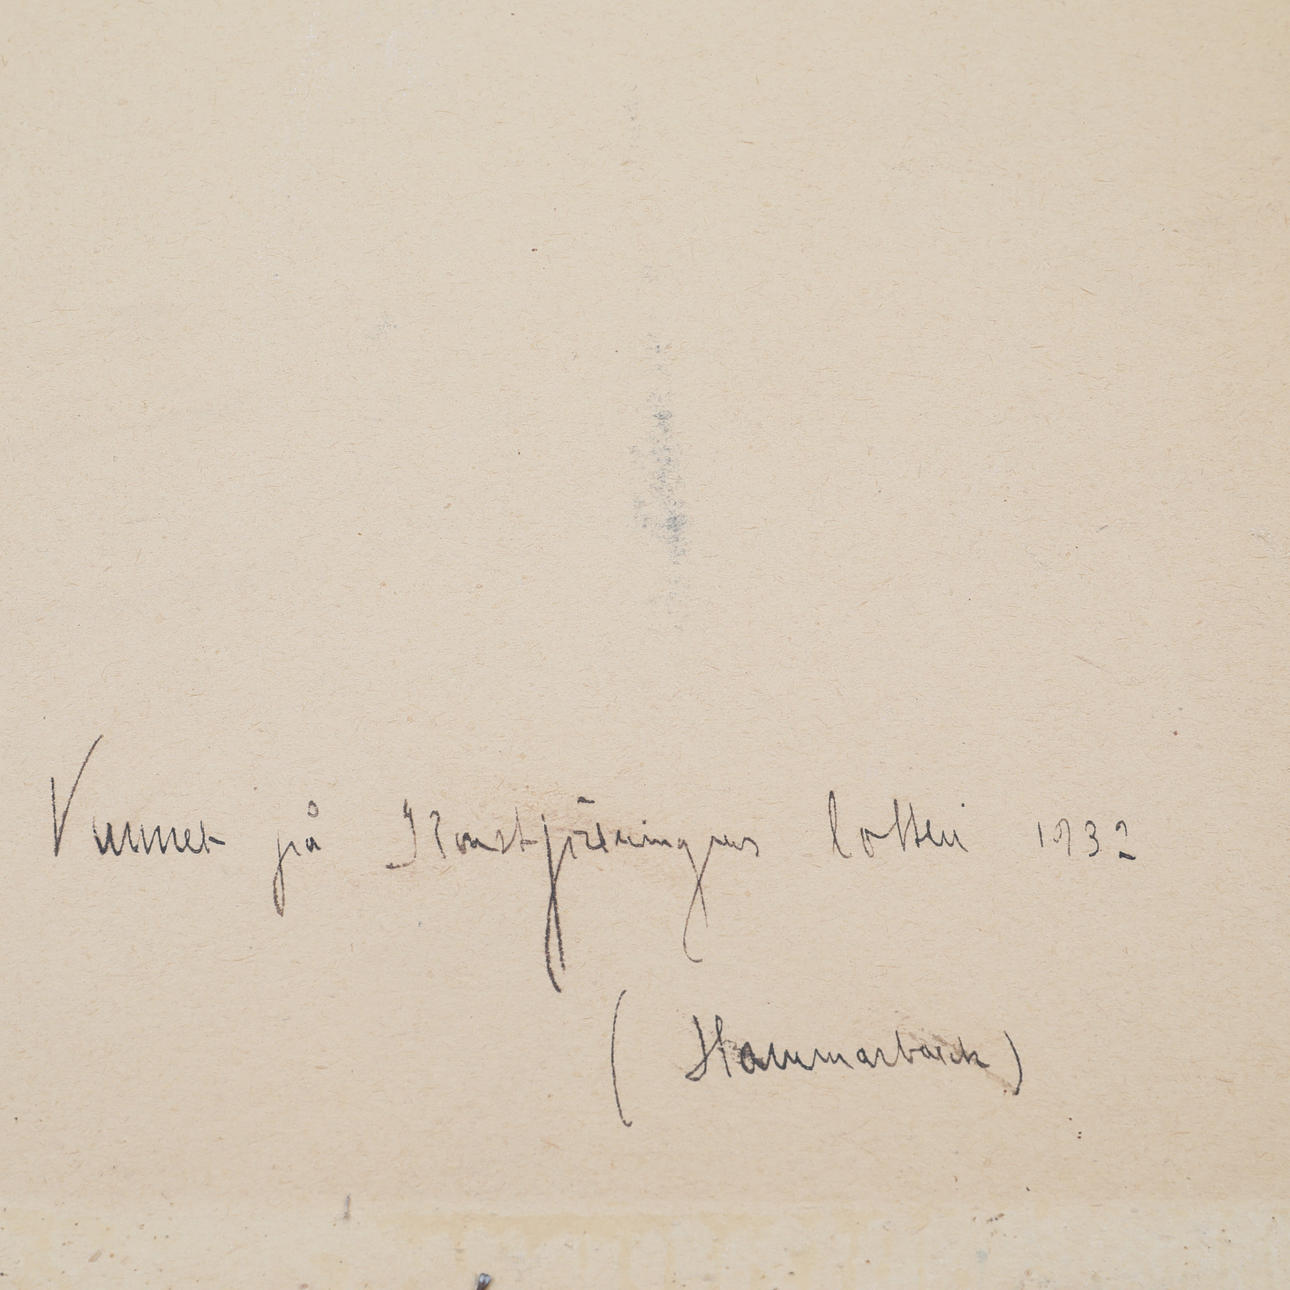 Vunnet på Konstföreningens lotteri 1932
(Hammarbäck)